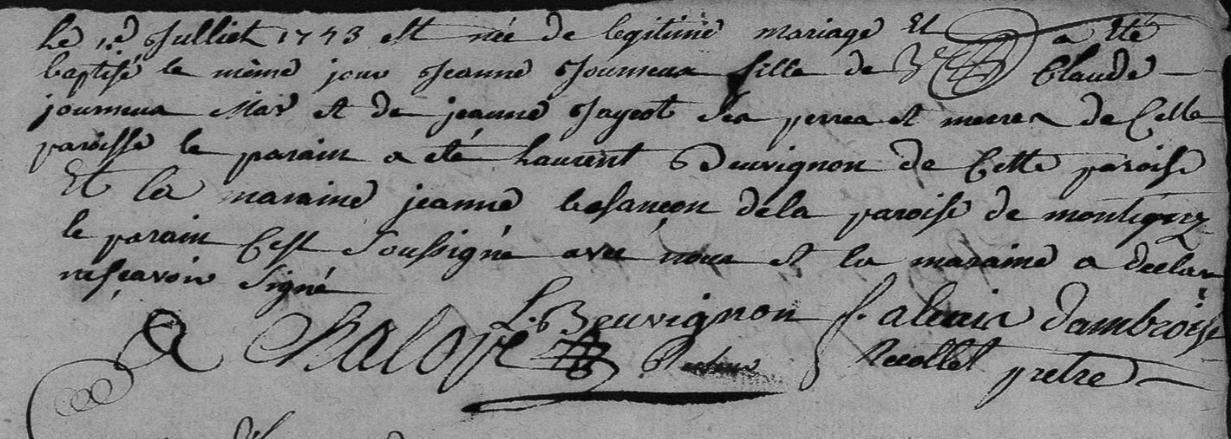 Le 1er Julliet 1773 est née de legitimé mariage Et a été
baptisé le même jour Jeanne Journeux fille de Claude
journeux Mar et de jeanné Jayeot Ses perres et merres de Cette
paroisse le parain a eté Laurent Beuvignon de Cette paroise
Et la maraine jeanné besançon dela paroise de montigny
le parain C'est Soussigné avec nous et la maraine a declaré
nesçavoir Signé
L. Beuvignon f. alexis dambroise
A Chaloye Recollet pretre